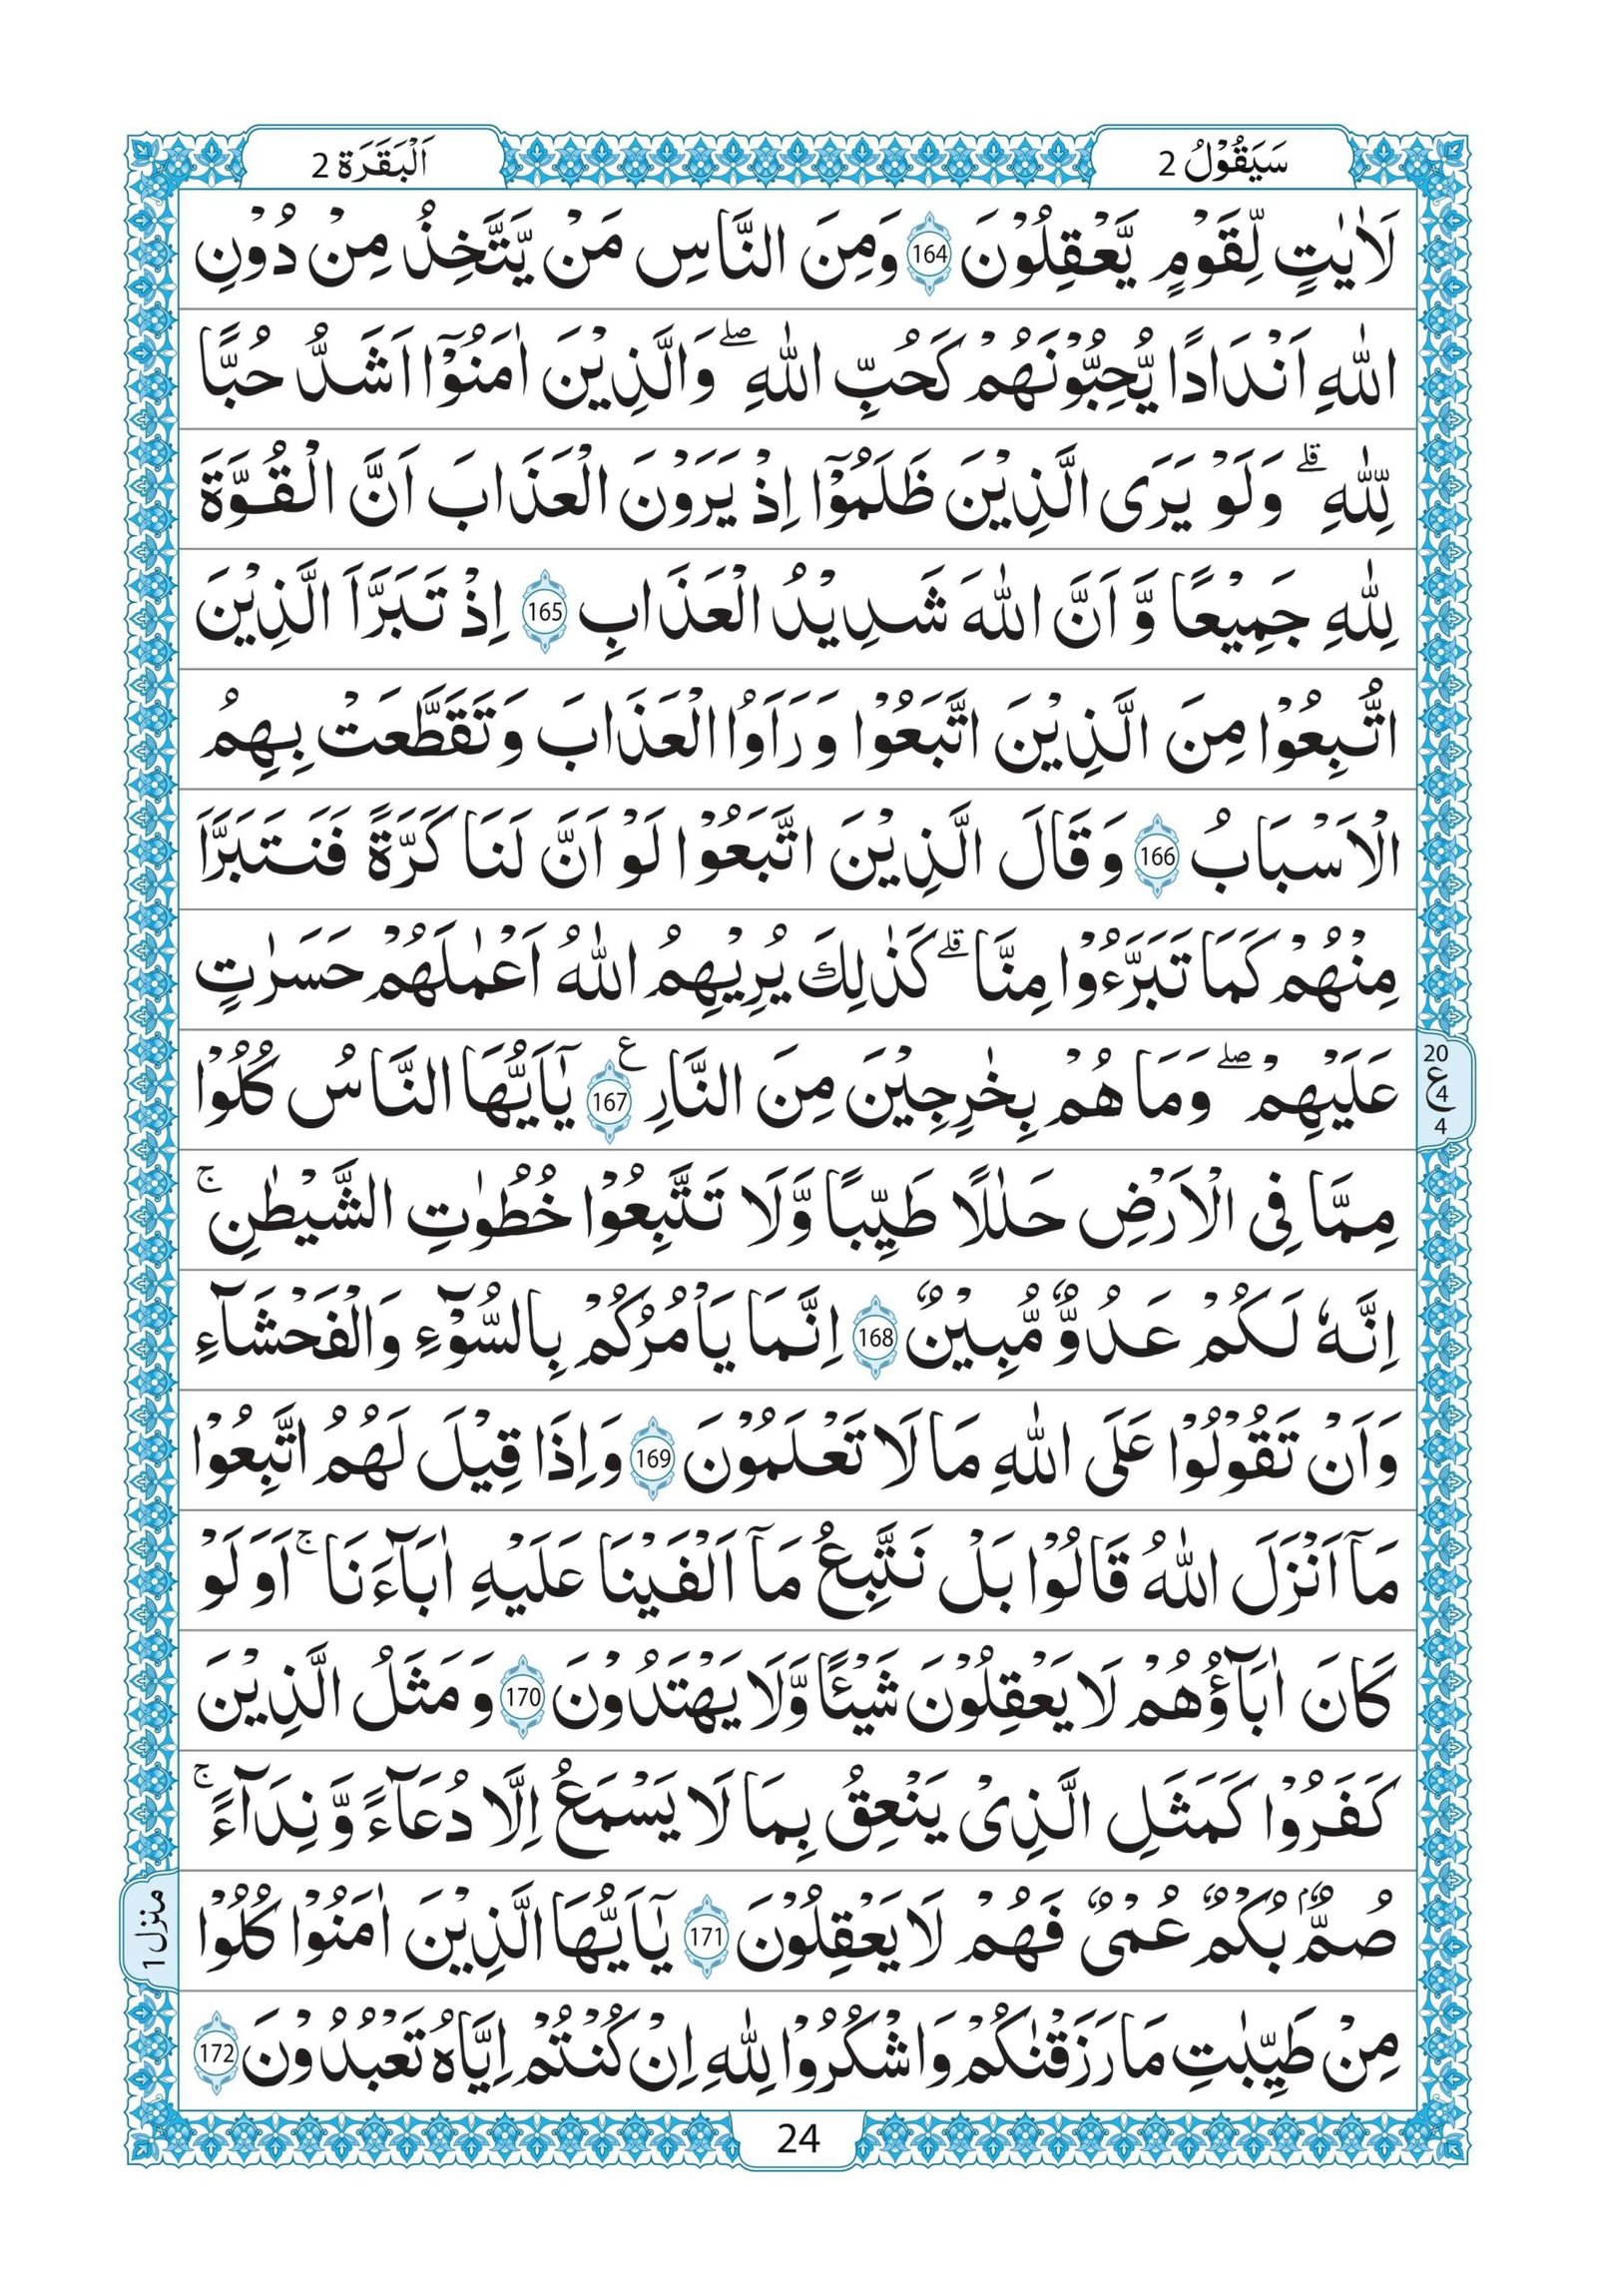 سَيَقُوْلُ 2
اَلْبَقَرَة 2
لَاٰيٰتٍ لِّقَوْمٍ يَّعْقِلُوْنَ 164 وَمِنَ النَّاسِ مَنْ يَّتَّخِذُ مِنْ دُوْنِ
اللّٰهِ اَنْدَادًا يُّحِبُّوْنَهُمْ كَحُبِّ اللّٰهِ ۖ وَالَّذِيْنَ اٰمَنُوْٓا اَشَدُّ حُبًّا
لِّلّٰهِ ۗ وَلَوْ يَرَى الَّذِيْنَ ظَلَمُوْٓا اِذْ يَرَوْنَ الْعَذَابَ اَنَّ الْقُوَّةَ
لِلّٰهِ جَمِيْعًا وَّ اَنَّ اللّٰهَ شَدِيْدُ الْعَذَابِ 165 اِذْ تَبَرَّاَ الَّذِيْنَ
اتُّبِعُوْا مِنَ الَّذِيْنَ اتَّبَعُوْا وَرَاَوُا الْعَذَابَ وَتَقَطَّعَتْ بِهِمُ
الْاَسْبَابُ 166 وَقَالَ الَّذِيْنَ اتَّبَعُوْا لَوْ اَنَّ لَنَا كَرَّةً فَنَتَبَرَّاَ
مِنْهُمْ كَمَا تَبَرَّءُوْا مِنَّا ۗ كَذٰلِكَ يُرِيْهِمُ اللّٰهُ اَعْمٰلَهُمْ حَسَرٰتٍ
عَلَيْهِمْ ۖ وَمَا هُمْ بِخٰرِجِيْنَ مِنَ النَّارِ ع 167 يٰٓاَيُّهَا النَّاسُ كُلُوْا
20 ع 4 4
مِمَّا فِى الْاَرْضِ حَلٰلًا طَيِّبًا وَّلَا تَتَّبِعُوْا خُطُوٰتِ الشَّيْطٰنِ ۚ
اِنَّهٗ لَكُمْ عَدُوٌّ مُّبِيْنٌ 168 اِنَّمَا يَاْمُرُكُمْ بِالسُّوْٓءِ وَالْفَحْشَآءِ
وَاَنْ تَقُوْلُوْا عَلَى اللّٰهِ مَا لَا تَعْلَمُوْنَ 169 وَاِذَا قِيْلَ لَهُمُ اتَّبِعُوْا
مَآ اَنْزَلَ اللّٰهُ قَالُوْا بَلْ نَتَّبِعُ مَآ اَلْفَيْنَا عَلَيْهِ اٰبَآءَنَا ۚ اَوَلَوْ
كَانَ اٰبَآؤُهُمْ لَا يَعْقِلُوْنَ شَيْـًٔا وَّلَا يَهْتَدُوْنَ 170 وَمَثَلُ الَّذِيْنَ
كَفَرُوْا كَمَثَلِ الَّذِىْ يَنْعِقُ بِمَا لَا يَسْمَعُ اِلَّا دُعَآءً وَّنِدَآءً ۚ
صُمٌّۢ بُكْمٌ عُمْىٌ فَهُمْ لَا يَعْقِلُوْنَ 171 يٰٓاَيُّهَا الَّذِيْنَ اٰمَنُوْا كُلُوْا
منزل 1
مِنْ طَيِّبٰتِ مَا رَزَقْنٰكُمْ وَاشْكُرُوْا لِلّٰهِ اِنْ كُنْتُمْ اِيَّاهُ تَعْبُدُوْنَ 172
24